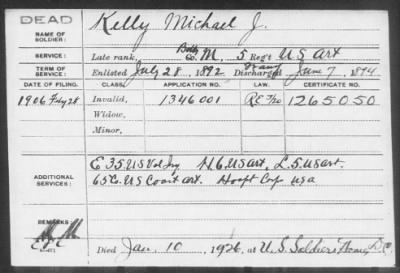 DEAD
NAME OF SOLDIER: Kelly Michael J.
SERVICE: Late rank, Batty Co. M, 5 Reg't US Art
TERM OF SERVICE: Enlisted July 28, 1892 Discharged June 7, 1894
DATE OF FILING. CLASS. APPLICATION NO. LAW. CERTIFICATE NO.
1906 Feby 28 Invalid, 1346001 1265050
Widow,
Minor,
ADDITIONAL SERVICES: E 35 US Vol Inf H. 6. US art, L. 5. US art.
65 Co. US Coast art. Hospt Corp USA
REMARKS:
Died Jan. 10, 1926, at U.S. Soldiers Home, D.C.